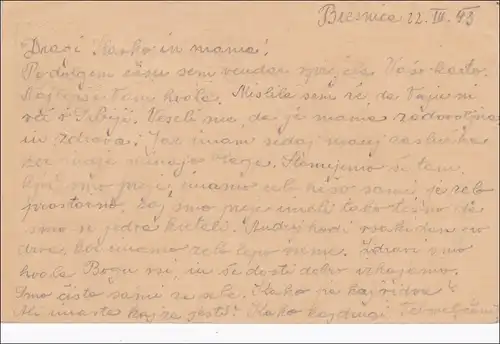 Bresnica 22. III. 43
Dragi Slavko in mama!
Po dolgem času sem vendar Vašo karto.
Najlepša Vam hvala. Mislila sem že, da Vaju ni
več v Srbiji. Veseli me, da je mama zadovoljna
in zdrava. Jaz imam sedaj manj zaslužka
ker moje minaja. Stanujemo še tam,
kjer smo prej, imamo celo hišo sami, je zelo
prostorno. Zaj smo prej imeli tako tesno da
smo se jedva kretali. Andrej hodi vsaki dan v
drva, ker imamo zelo lepo vreme. Zdravi smo
hvala Bogu vsi, in še dosti dobro izhajamo.
Smo čisto sami za sebe. Kako pa kaj Vidva?
Ali imasta kaj za jesti? Kako kaj drugi